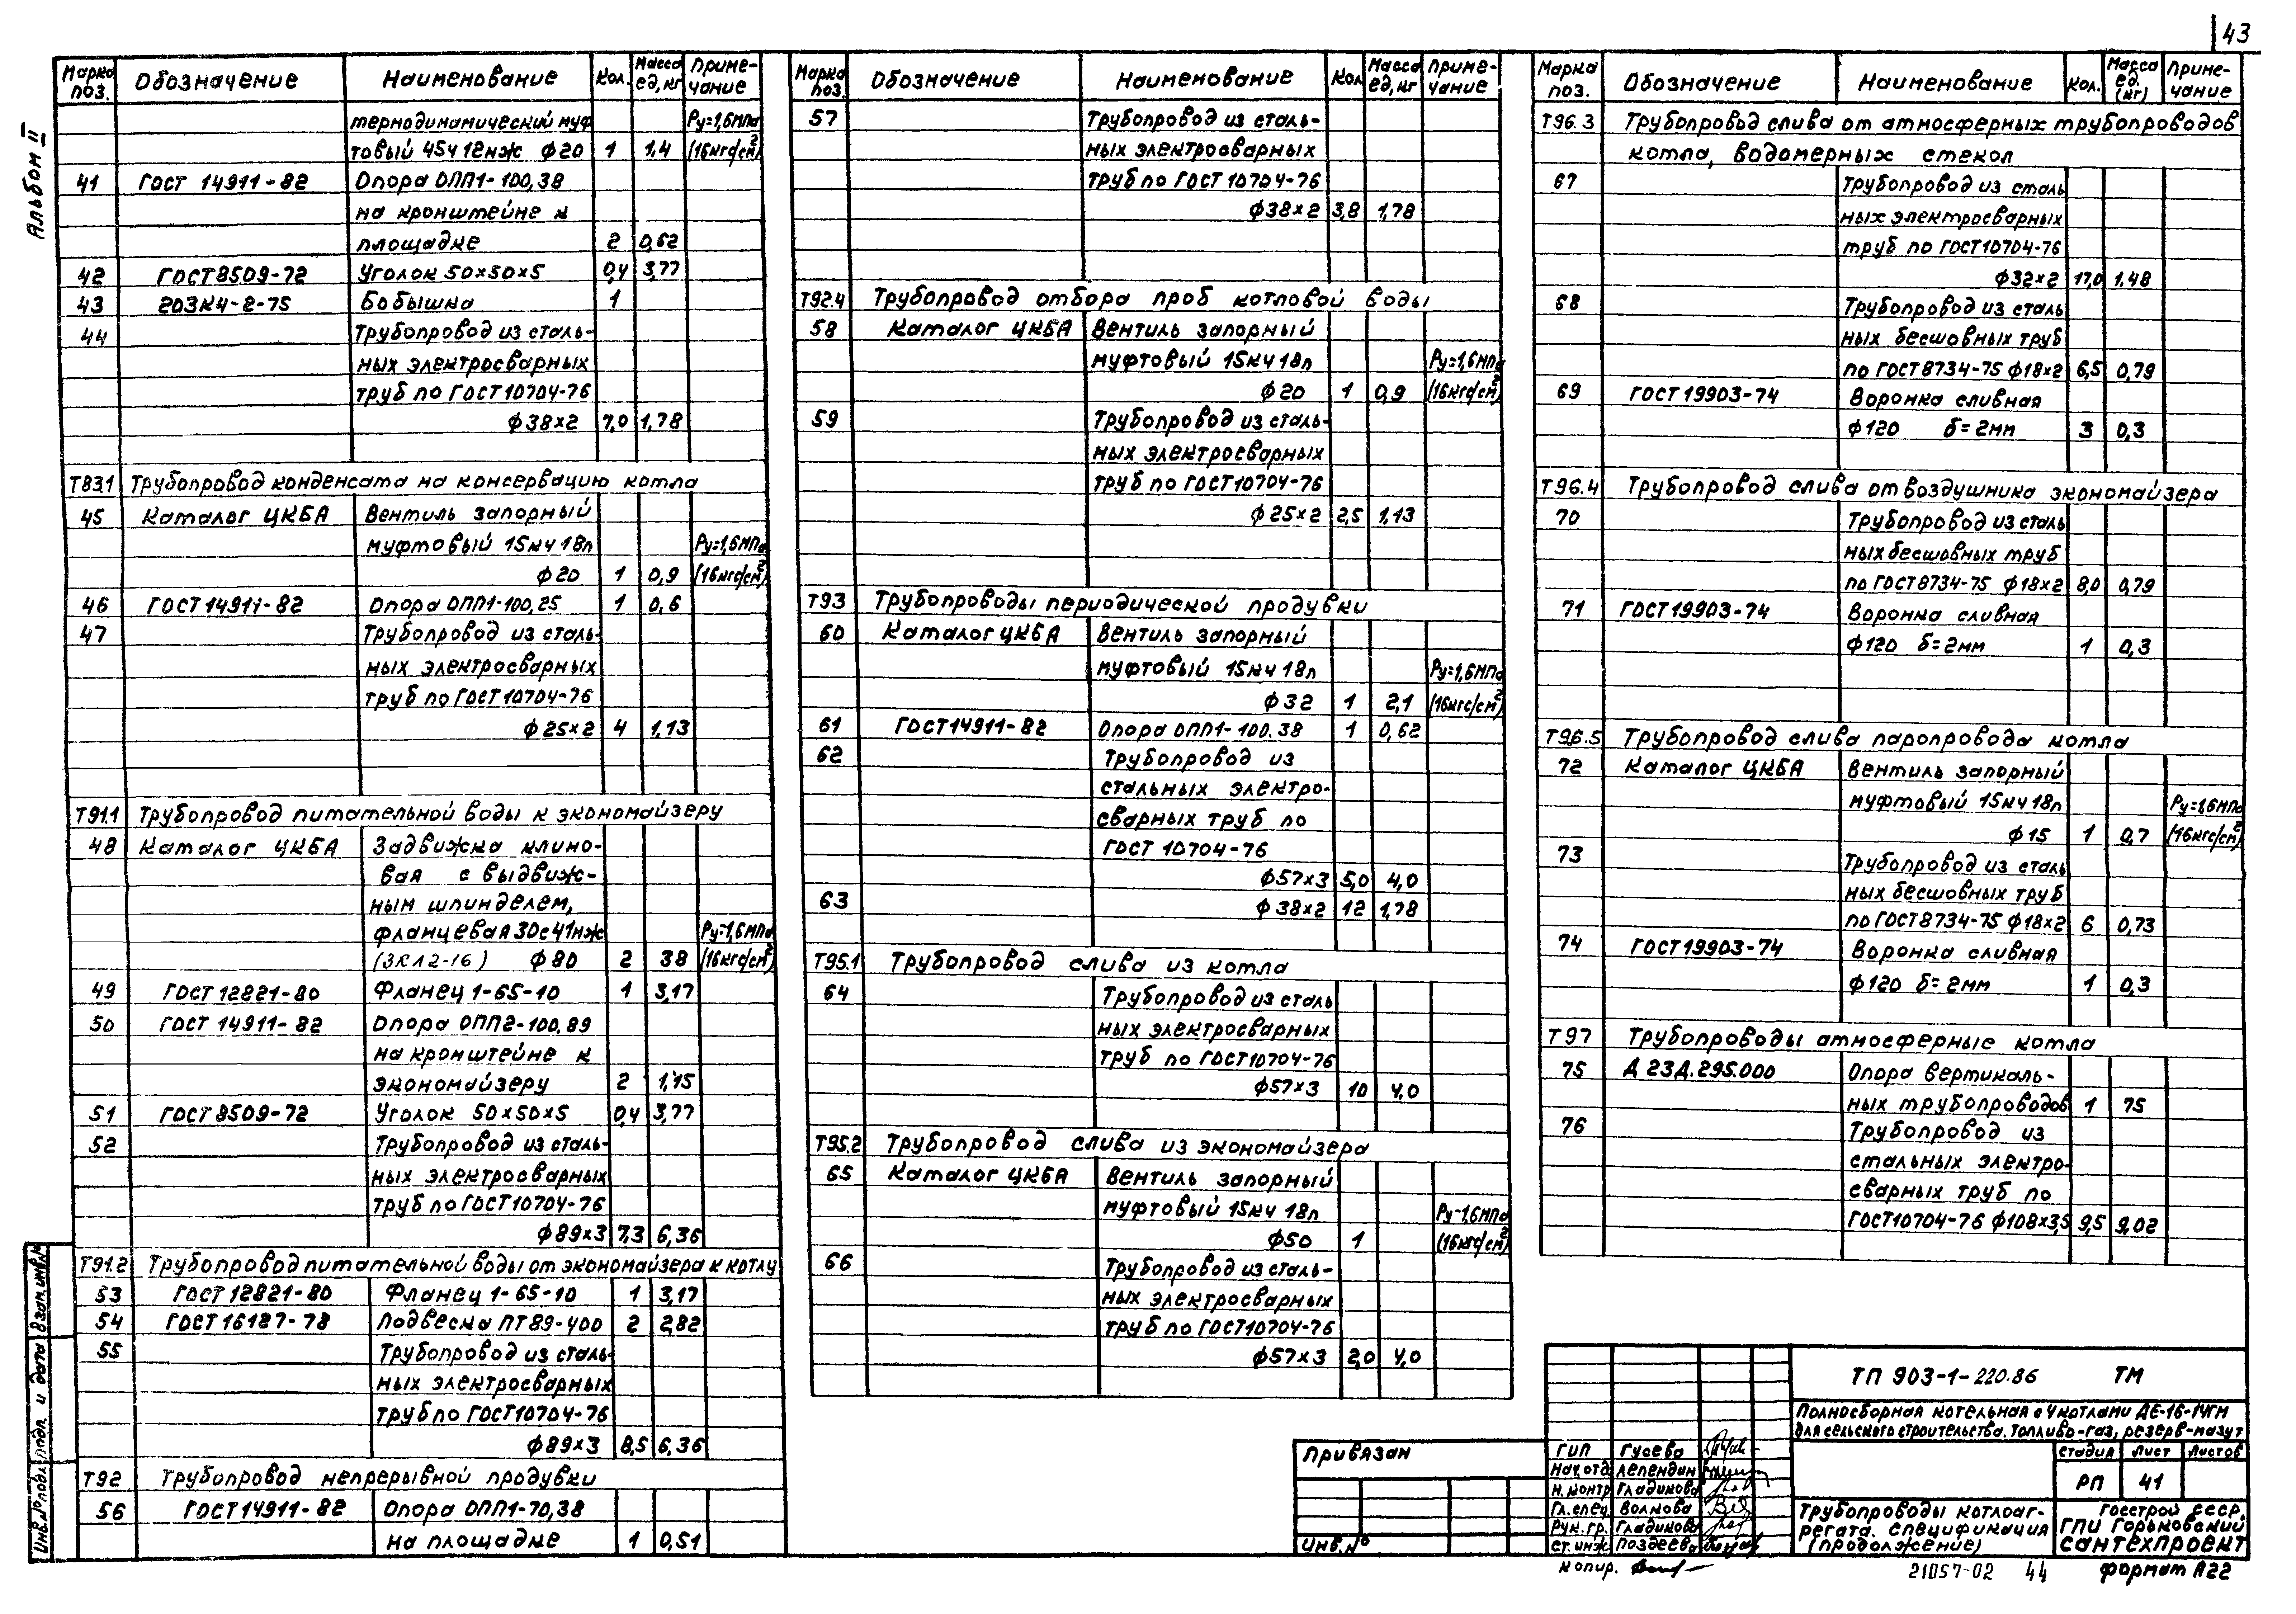 43
Альбом II
Марка поз. Обозначение Наименование Кол. Масса ед, кг Примечание
термодинамический муф Ру=1,6МПа
товый 45ч 12нж ф20 1 1,4 (16кгс/см²)
41 ГОСТ 14911-82 Опора ОПП1-100,38
на кронштейне к
площадке 2 0,62
42 ГОСТ 8509-72 Уголок 50×50×5 0,4 3,77
43 20ЗК4-2-75 Бобышка 1
44 Трубопровод из сталь-
ных электросварных
труб по ГОСТ 10704-76
ф38×2 7,0 1,78
Т83.1 Трубопровод конденсата на консервацию котла
45 Каталог ЦКБА Вентиль запорный
муфтовый 15кч 18п Ру=1,6МПа
ф20 1 0,9 (16кгс/см²)
46 ГОСТ 14911-82 Опора ОПП1-100,25 1 0,6
47 Трубопровод из сталь-
ных электросварных
труб по ГОСТ 10704-76
ф25×2 4 1,13
Т91.1 Трубопровод питательной воды к экономайзеру
48 Каталог ЦКБА Задвижка клино-
вая с выдвиж-
ным шпинделем,
фланцевая 30с41нж Ру=1,6МПа
(ЗКЛ2-16) ф80 2 38 (16кгс/см²)
49 ГОСТ 12821-80 Фланец 1-65-10 1 3,17
50 ГОСТ 14911-82 Опора ОПП2-100,89
на кронштейне к
экономайзеру 2 1,15
51 ГОСТ 8509-72 Уголок 50×50×5 0,4 3,77
52 Трубопровод из сталь-
ных электросварных
труб по ГОСТ 10704-76
ф89×3 7,3 6,36
Т91.2 Трубопровод питательной воды от экономайзера к котлу
53 ГОСТ 12821-80 Фланец 1-65-10 1 3,17
54 ГОСТ 16127-78 Подвеска ПТ89-400 2 2,82
55 Трубопровод из сталь-
ных электросварных
труб по ГОСТ 10704-76
ф89×3 8,5 6,36
Т92 Трубопровод непрерывной продувки
56 ГОСТ 14911-82 Опора ОПП1-70,38
на площадке 1 0,51
Марка поз. Обозначение Наименование Кол. Масса ед, кг Примечание
57 Трубопровод из сталь-
ных электросварных
труб по ГОСТ 10704-76
ф38×2 3,8 1,78
Т92.4 Трубопровод отбора проб котловой воды
58 Каталог ЦКБА Вентиль запорный
муфтовый 15кч 18п Ру=1,6МПа
ф20 1 0,9 (16кгс/см²)
59 Трубопровод из сталь-
ных электросварных
труб по ГОСТ 10704-76
ф25×2 2,5 1,13
Т93 Трубопроводы периодической продувки
60 Каталог ЦКБА Вентиль запорный
муфтовый 15кч 18п Ру=1,6МПа
ф32 1 2,1 (16кгс/см²)
61 ГОСТ 14911-82 Опора ОПП1-100.38 1 0,62
62 Трубопровод из
стальных электро-
сварных труб по
ГОСТ 10704-76
ф57×3 5,0 4,0
63 ф38×2 12 1,78
Т95.1 Трубопровод слива из котла
64 Трубопровод из сталь
ных электросварных
труб по ГОСТ 10704-76
ф57×3 10 4,0
Т95.2 Трубопровод слива из экономайзера
65 Каталог ЦКБА Вентиль запорный
муфтовый 15кч 18п Ру-1,6МПа
ф50 1 (16кгс/см²)
66 Трубопровод из сталь-
ных электросварных
труб по ГОСТ 10704-76
ф57×3 2,0 4,0
Марка поз. Обозначение Наименование Кол. Масса ед. (кг) Примечание
Т96.3 Трубопровод слива от атмосферных трубопроводов
котла, водомерных стекол
67 Трубопровод из сталь
ных электросварных
труб по ГОСТ 10704-76
ф32×2 17,0 1,48
68 Трубопровод из сталь
ных бесшовных труб
по ГОСТ 8734-75 ф18×2 6,5 0,79
69 ГОСТ 19903-74 Воронка сливная
ф120 δ=2мм 3 0,3
Т96.4 Трубопровод слива от воздушника экономайзера
70 Трубопровод из сталь
ных бесшовных труб
по ГОСТ 8734-75 ф18×2 8,0 0,79
71 ГОСТ 19903-74 Воронка сливная
ф120 δ=2мм 1 0,3
Т96.5 Трубопровод слива паропровода котла
72 Каталог ЦКБА Вентиль запорный
муфтовый 15кч 18п Ру=1,6МПа
ф15 1 0,7 (16кгс/см²)
73 Трубопровод из сталь
ных бесшовных труб
по ГОСТ 8734-75 ф18×2 6 0,73
74 ГОСТ 19903-74 Воронка сливная
ф120 δ=2мм 1 0,3
Т97 Трубопроводы атмосферные котла
75 Д 23Д.295.000 Опора вертикаль-
ных трубопроводов 1 75
76 Трубопровод из
стальных электро-
сварных труб по
ГОСТ 10704-76 ф108×3,5 9,5 9,02
Инв.№ подл. Подп. и дата Взам.инв.№
Привязан
Инв.№
ГИП Гусева
Нач.отд Лепендин
Н.контр Гладикова
Гл.спец. Волкова
Рук.гр. Гладикова
Ст.инж Поздеева
Копир.
ТП 903-1-220.86 ТМ
Полносборная котельная с 4 котлами ДЕ-16-14ГМ
для сельского строительства. Топливо-газ, резерв-мазут
Стадия Лист Листов
РП 41
Трубопроводы котлоаг-
регата. Спецификация
(продолжение)
Госстрой СССР
ГПИ Горьковский
Сантехпроект
21057-02 44 Формат А22